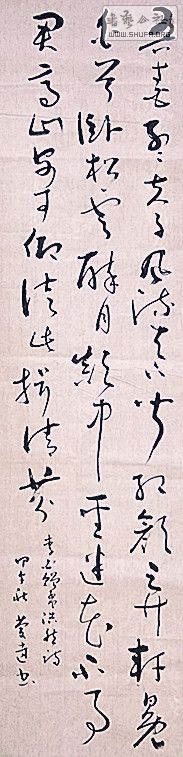 書藝公社
WWW.SHUFA.ORG
吾愛孟夫子風流天下聞紅顏棄軒冕
白首臥松雲醉月頻中聖迷花不事
君高山安可仰徒此揖清芬
李白贈孟浩然詩
甲午秋 書